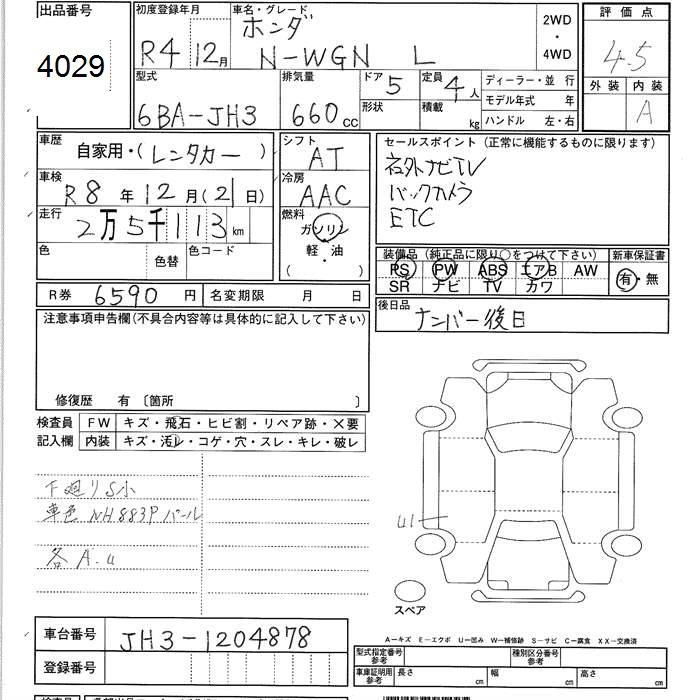 出品番号
4029
初度登録年月
R4 12月
車名・グレード
ホンダ
N-WGN L
2WD
・
4WD
評価点
4.5
外装 内装
A
型式
6BA-JH3
排気量
660cc
ドア 5
形状
定員 4人
積載 kg
ディーラー・並行
モデル年式 年
ハンドル 左・右
車歴
自家用・(レンタカー)
車検
R8年12月(21日)
走行
2万5千113km
色 色替 色コード
シフト
AT
冷房
AAC
燃料
ガソリン
軽・油
( )
セールスポイント(正常に機能するものに限ります)
社外ナビTV
バックカメラ
ETC
装備品(純正品に限り○をつけて下さい)
PS PW ABS エアB AW
SR ナビ TV カワ
新車保証書
有・無
R券 6590円
名変期限 月 日
後日品
ナンバー後日
注意事項申告欄(不具合内容等は具体的に記入して下さい)
修復歴 有 〔箇所 〕
検査員
記入欄
FW キズ・飛石・ヒビ割・リペア跡・×要
内装 キズ・汚レ・コゲ・穴・スレ・キレ・破レ
下廻りS小
車色 NH883P パール
各A.u
U1
スペア
車台番号 JH3-1204878
登録番号
A-キズ E-エクボ U-凹み W-補修跡 S-サビ C-腐食 XX-交換済
型式指定番号
参考
種別区分番号
参考
車庫証明用
参考
長さ cm 幅 cm 高さ cm